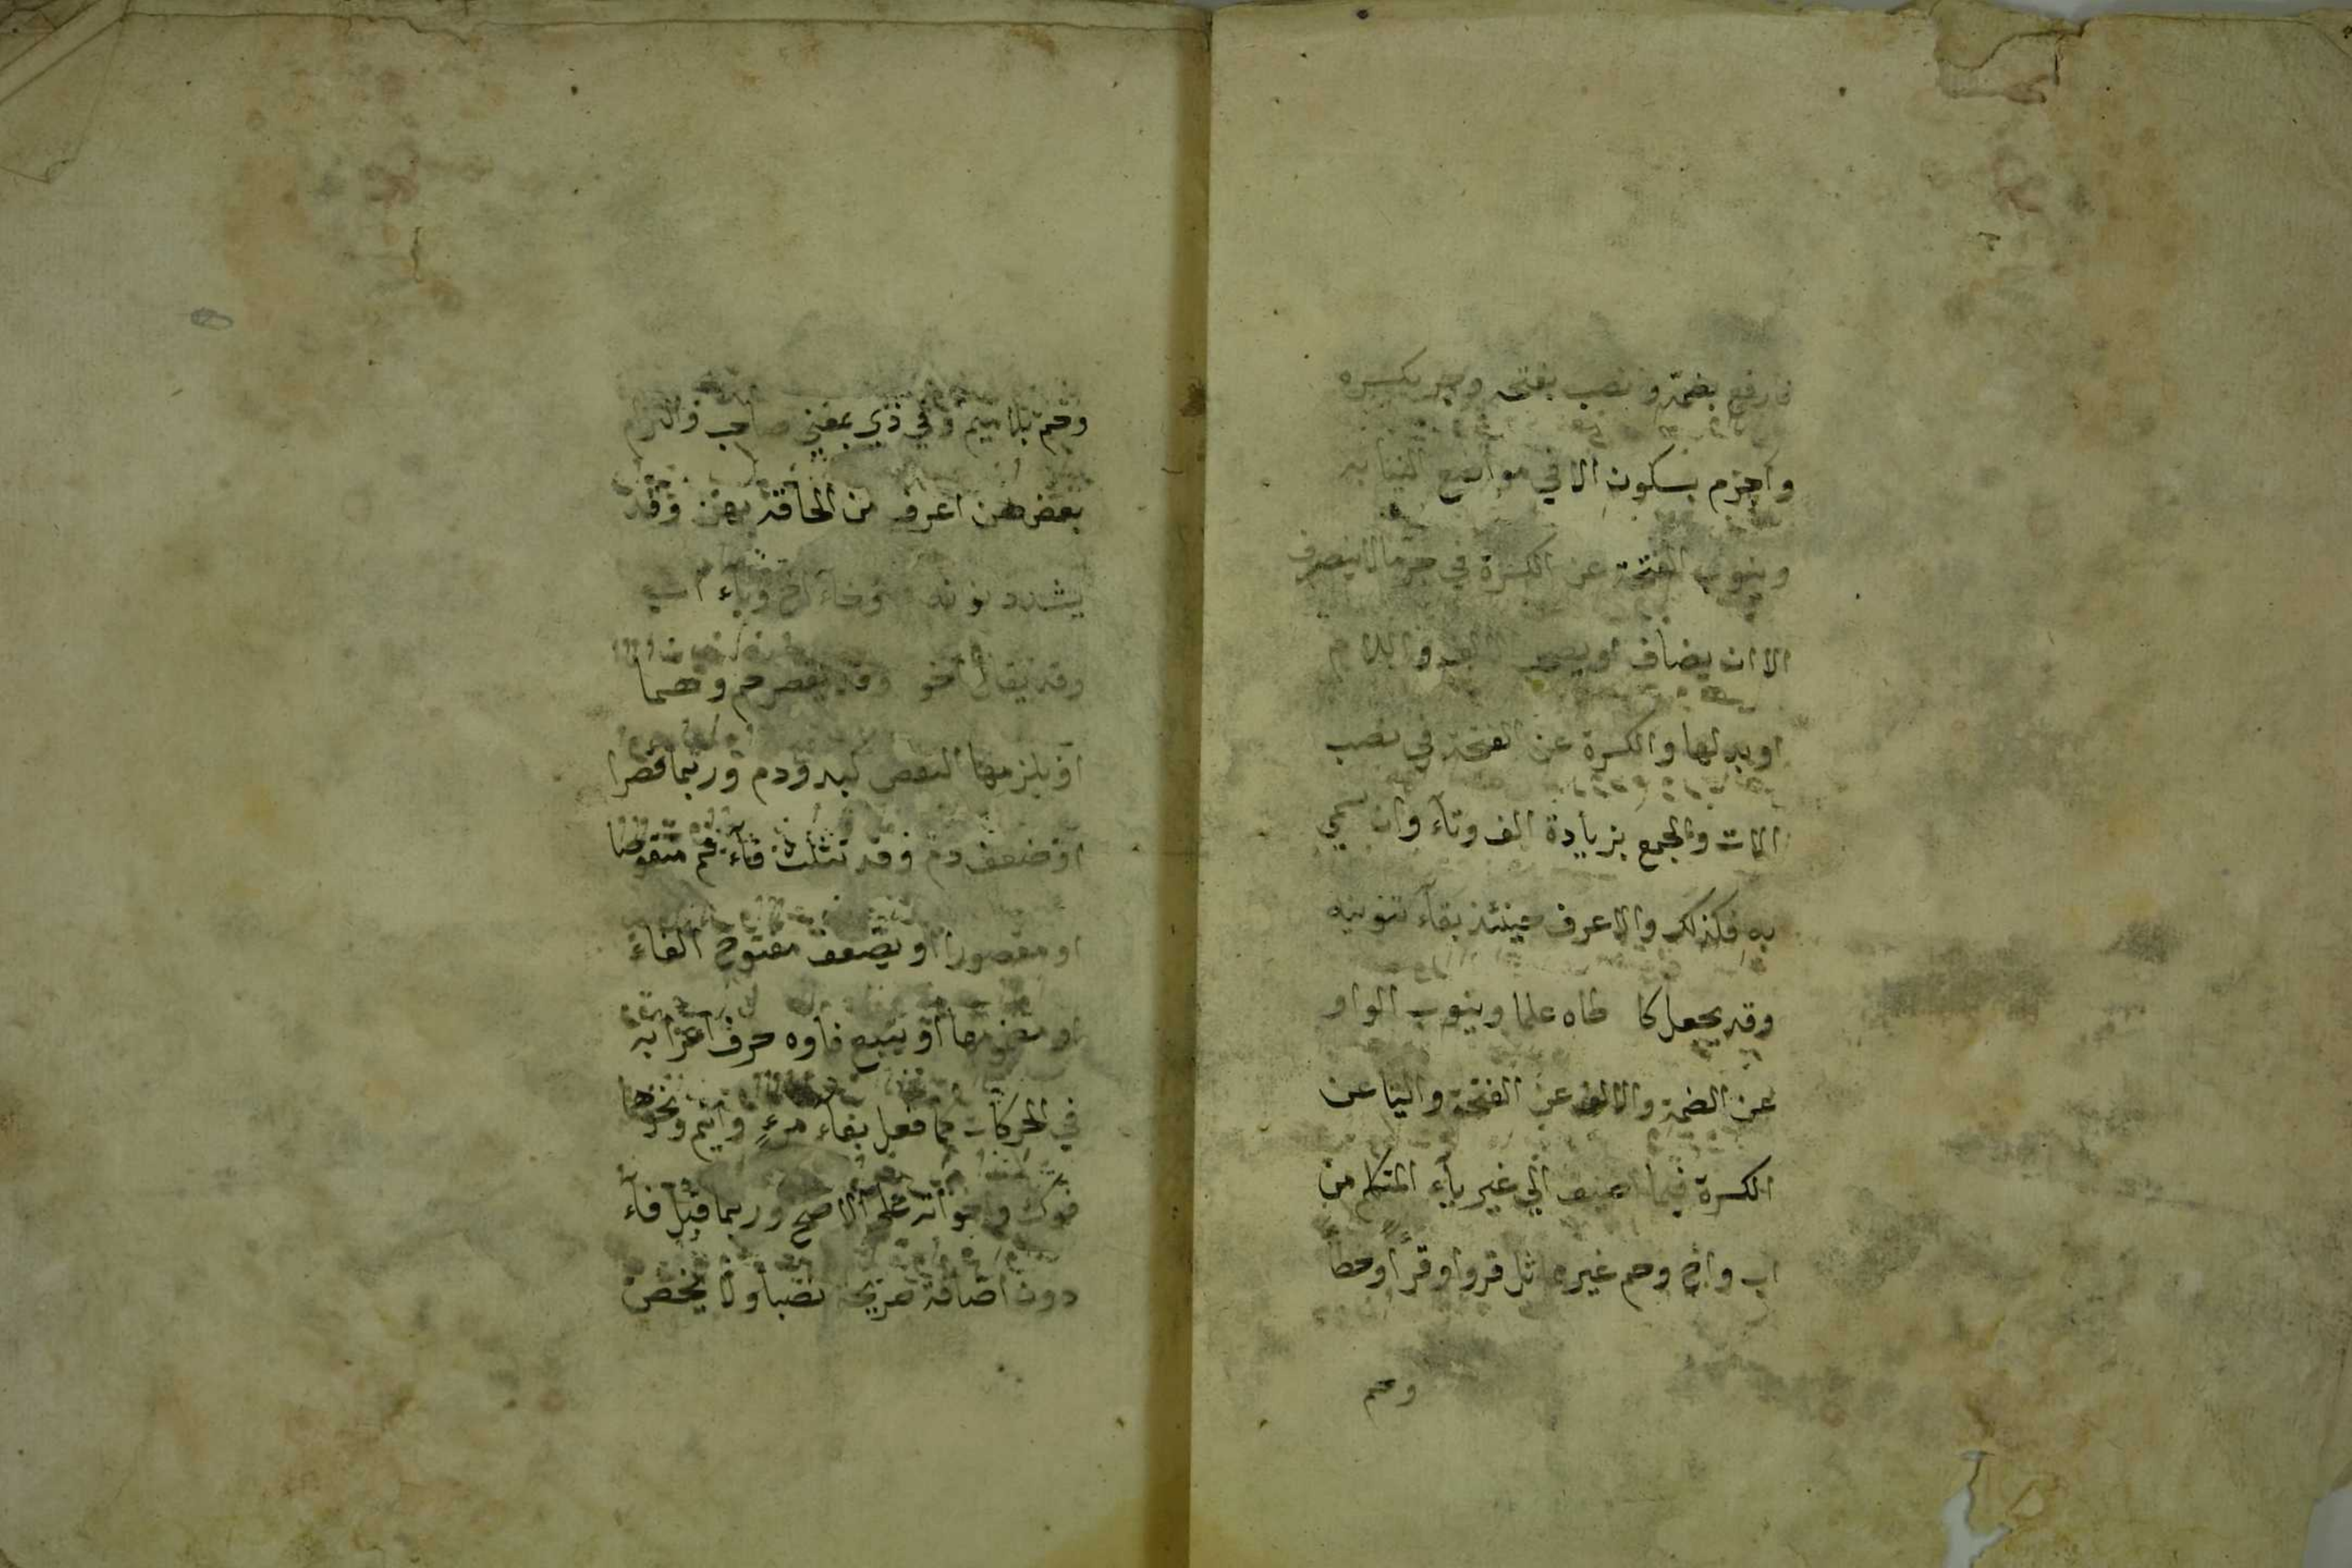 فارفع بضمة وانصب بفتحة وجر بكسره
واجزم بسكون الا في مواضع النيابه
وينوب الفتحة عن الكسرة في جر ما لا ينصرف
الا ان يضاف او يصحب الالف واللام
او بدلها والكسرة عن الفتحة في نصب
الات والجمع بزيادة الف وتآء وان سمي
به فكذلك والاعرف حينئذ بقآء تنوينه
وقد يجعل كا طاه علما وينوب الواو
عن الضمة والالف عن الفتحة واليا عن
الكسرة فيما اضيف الي غير يآء المتكلم من
اب واخ وحم غير مماثل قروا وقرأ وخطأ
وحم
وفم بلا ميم وفي ذي بمعني صاحب والتزام
نقص هن اعرف من الحاقه بهن وقد
يشدد نونه وخاء اخ وباء اب
وقد يقال اخو وقد يقصر حم وهما
او يلزمهما النقص كيد ودم وربما قصرا
او ضعف دم وقد تثلث فآء فم منقوصا
او مقصورا او يضعف مفتوح الفاء
او مضمومها او يتبع فاوه حرف اعرابه
في الحركات كما فعل بفآء مرءٍ وابنم ونحوهما
فوك واخواته علي الاصح وربما قيل فآء
دون اضافة صريحة نصبا ولا يختص